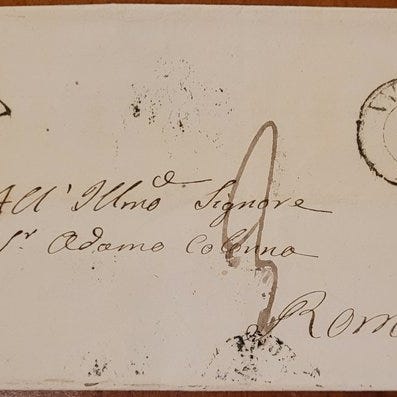 All' Illmo Signore
Sr Adamo Colonna
3
Rom